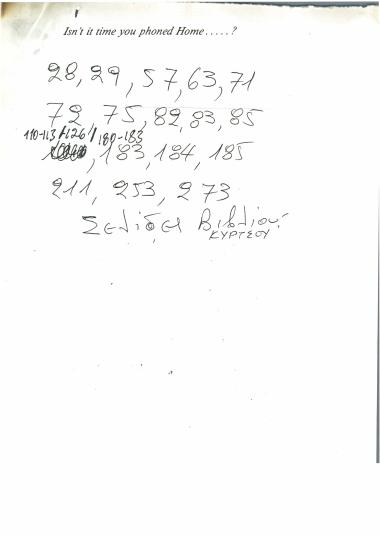 Isn't it time you phoned Home.....?
28, 29, 57, 63, 71
72 75, 82, 83, 85
110-113/126/180-183
, 183, 184, 185
211, 253, 273
Σελίδες Βιβλίου:
ΚΥΡΤΣΟΥ